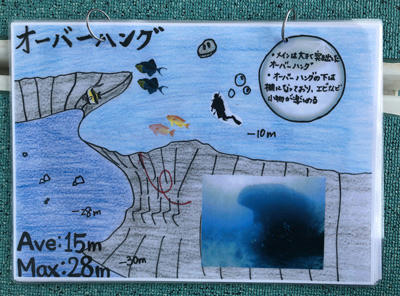 オーバーハング
・メインは大きく突き出した
オーバーハング
・オーバーハングの下は
棚になっており、エビなど
小物が楽しめる
-10m
-28m
-30m
Ave:15m
Max:28m